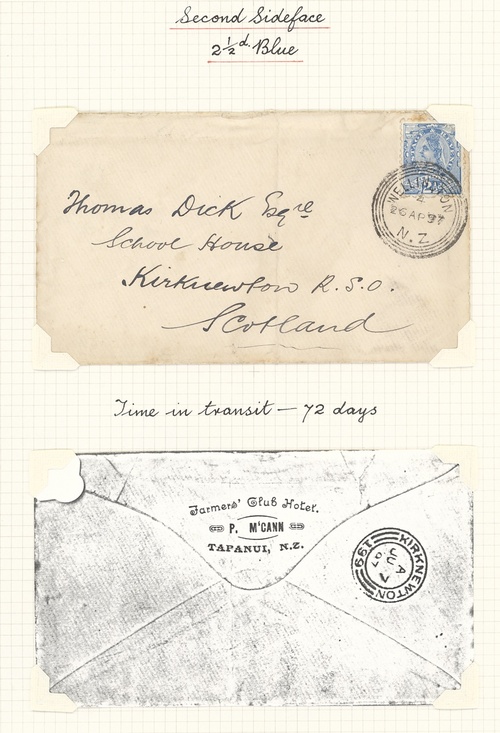 Second Sideface
2½d. Blue
WELLINGTON
4
26 AP 97
N.Z.
Thomas Dick Esqre
School House
Kirknewton R.S.O.
Scotland
Time in transit — 72 days
Farmers' Club Hotel.
P. McCANN
TAPANUI, N.Z.
KIRKNEWTON
199
A
JU 7
97